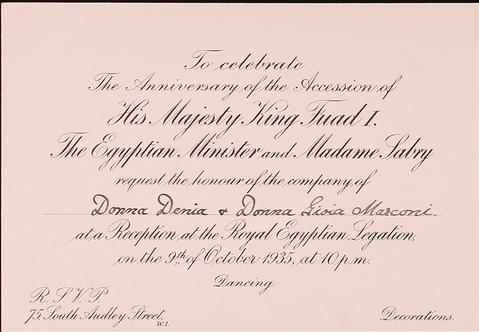 To celebrate
The Anniversary of the Accession of
His Majesty King Fuad I.
The Egyptian Minister and Madame Sabry
request the honour of the company of
Donna Denia & Donna Gioia Marconi.
at a Reception at the Royal Egyptian Legation,
on the 9th of October 1935, at 10 p.m.
Dancing.
R.S.V.P.
75, South Audley Street,
W.1.
Decorations.